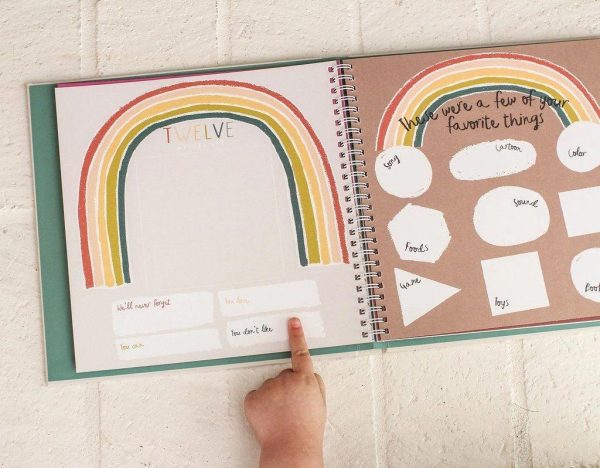 TWELVE
We'll never forget
You love
You can
You don't like
These were a few of your
favorite things
Song
Cartoon
Color
Foods
Sound
Game
Toys
Book